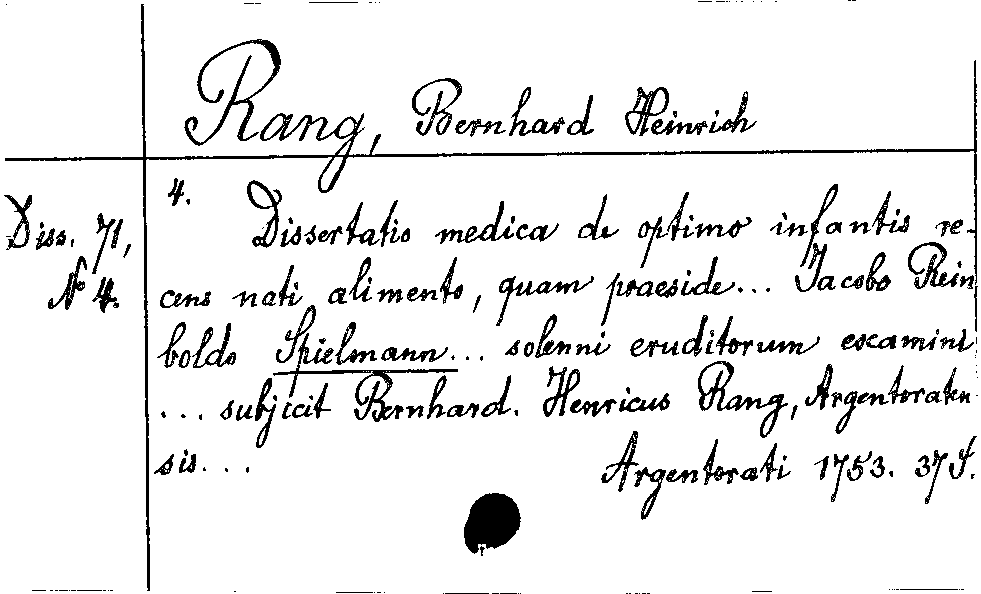 Rang, Bernhard Heinrich
Diss. 71,
No 4.
4. Dissertatio medica de optimo infantis re-
cens nati alimento, quam praeside... Jacobo Rein
boldo Spielmann... solenni eruditorum examini
... subjicit Bernhard. Henricus Rang, Argentoraten
sis...
Argentorati 1753. 37 S.